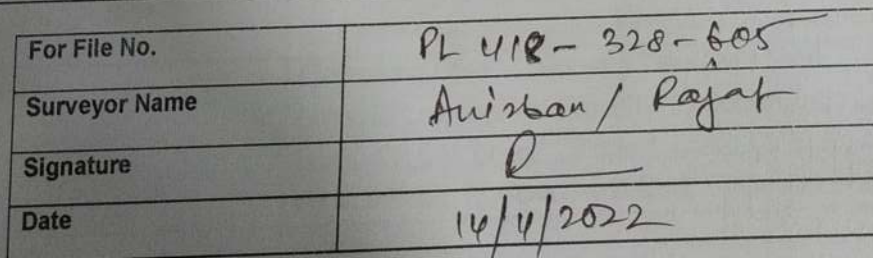 For File No. PL 418 - 328 - 605
Surveyor Name Anirban / Rajat
Signature
Date 14/4/2022